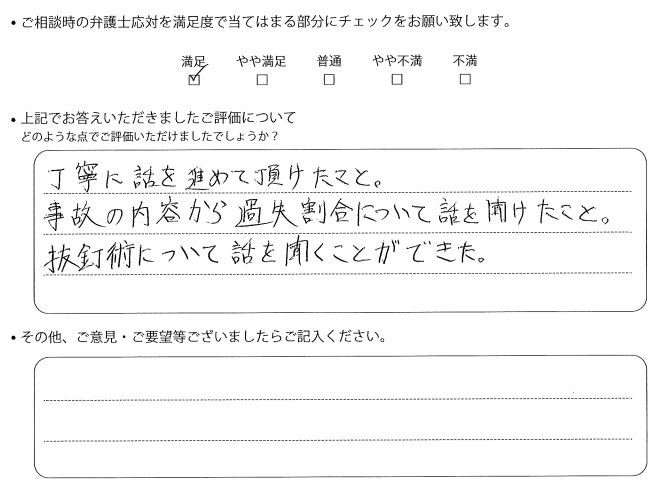 • ご相談時の弁護士応対を満足度で当てはまる部分にチェックをお願い致します。
満足 やや満足 普通 やや不満 不満
• 上記でお答えいただきましたご評価について
どのような点でご評価いただけましたでしょうか？
丁寧に話を進めて頂けたこと。
事故の内容から過失割合について話を聞けたこと。
抜釘術について話を聞くことができた。
• その他、ご意見・ご要望等ございましたらご記入ください。